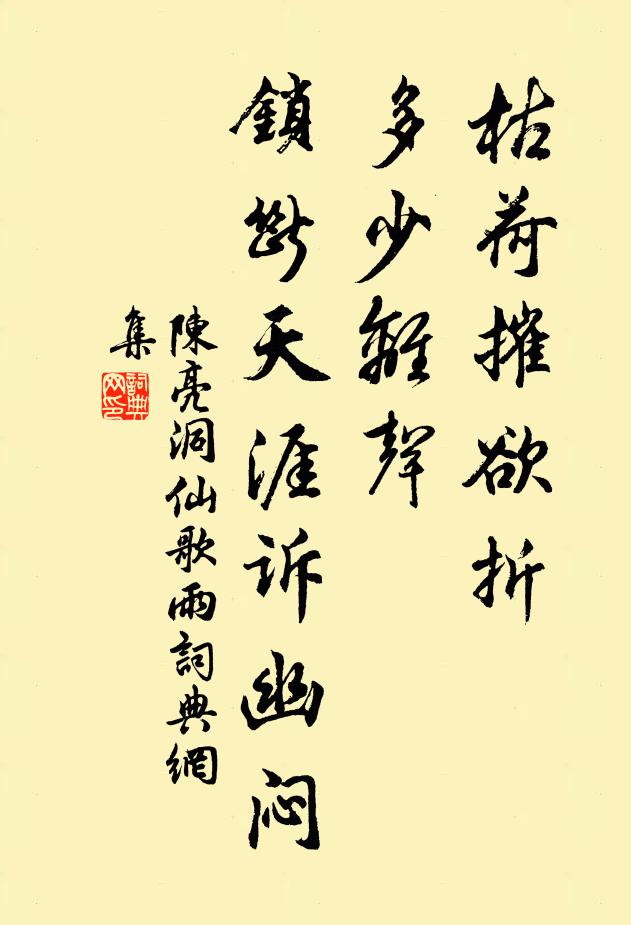 枯荷摧欲折
多少離聲
鎖斷天涯訴幽闷
陳亮洞仙歌雨詞典網
集
詞典
网印